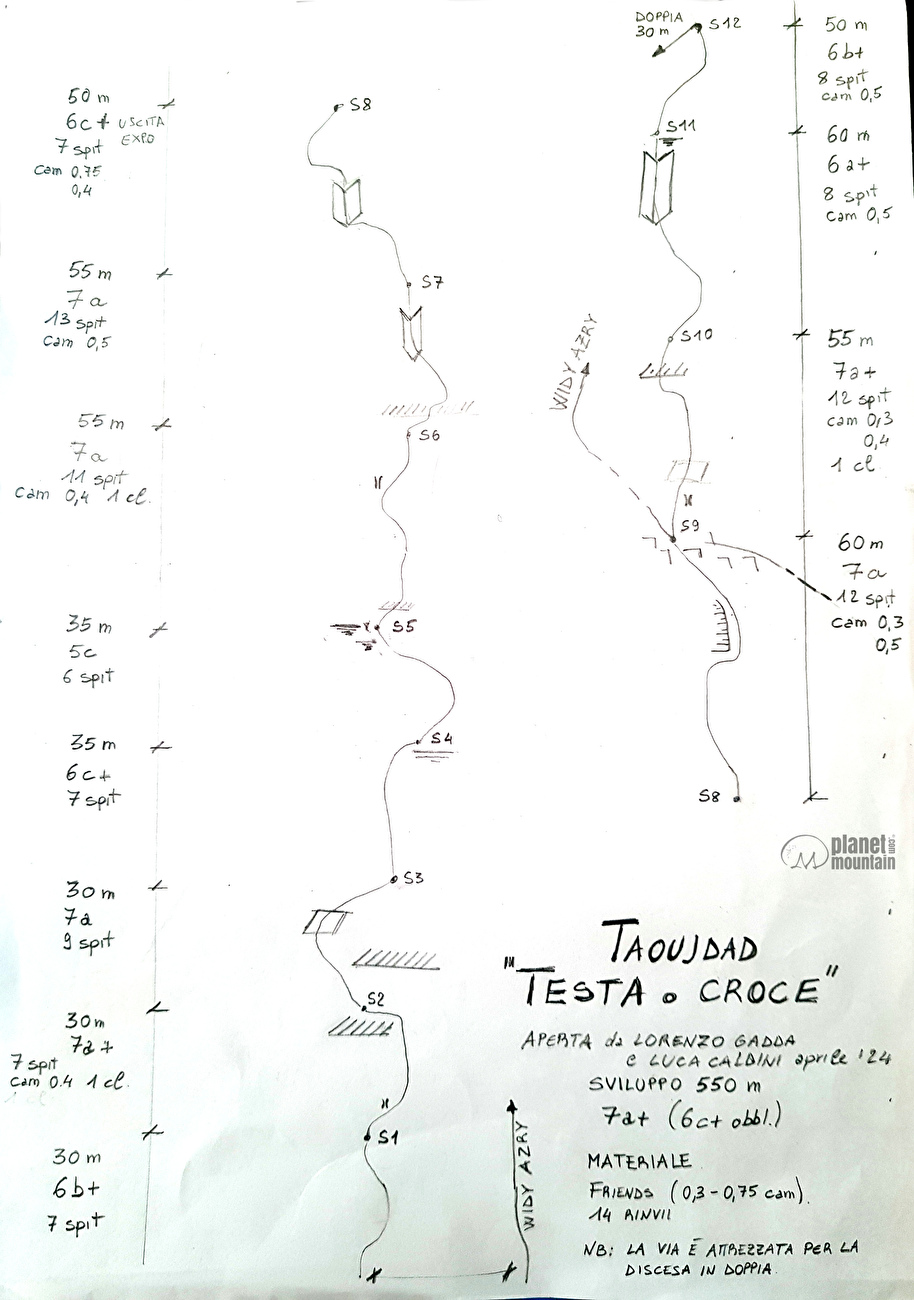 50 m
6c+ USCITA
EXPO
7 spit
cam 0,75
0,4
S8
55 m
7a
13 spit
cam 0,5
S7
55 m
7a
11 spit
cam 0,4 1 cl.
S6
35 m
5c
6 spit
S5
35 m
6c+
7 spit
S4
30 m
7a
9 spit
S3
30m
7a+
7 spit
cam 0.4 1 cl.
S2
S1
30 m
6b+
7 spit
WIDY AZRY
DOPPIA
30 m
S12
50 m
6b+
8 spit
cam 0,5
S11
60 m
6a+
8 spit
cam 0,5
S10
WIDY AZRY
55 m
7a+
12 spit
cam 0,3
0,4
1 cl.
S9
60 m
7a
12 spit
cam 0,3
0,5
S8
planet
mountain
.com
TAOUJDAD
"TESTA o CROCE"
APERTA da LORENZO GADDA
e LUCA CALDINI aprile '24
SVILUPPO 550 m
7a+ (6c+ obbl.)
MATERIALE
FRIENDS (0,3-0,75 cam).
14 RINVII
NB: LA VIA È ATTREZZATA PER LA
DISCESA IN DOPPIA.